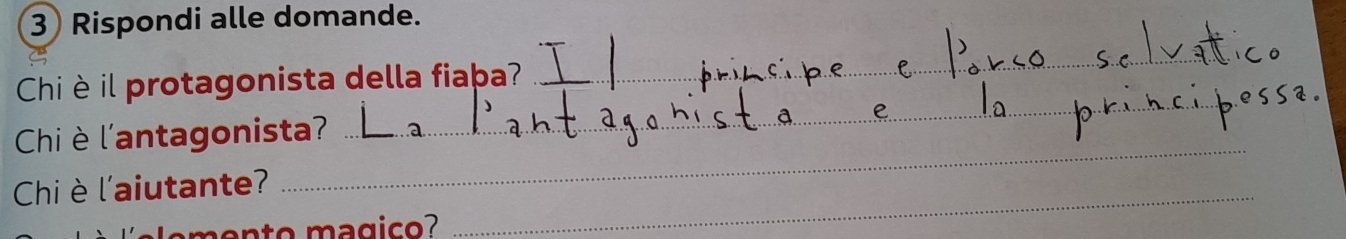 3 Rispondi alle domande.
Chi è il protagonista della fiaba? Il principe e l'orco selvatico
Chi è l'antagonista? La l'antagonista e la principessa.
Chi è l'aiutante?
l'elemento magico?